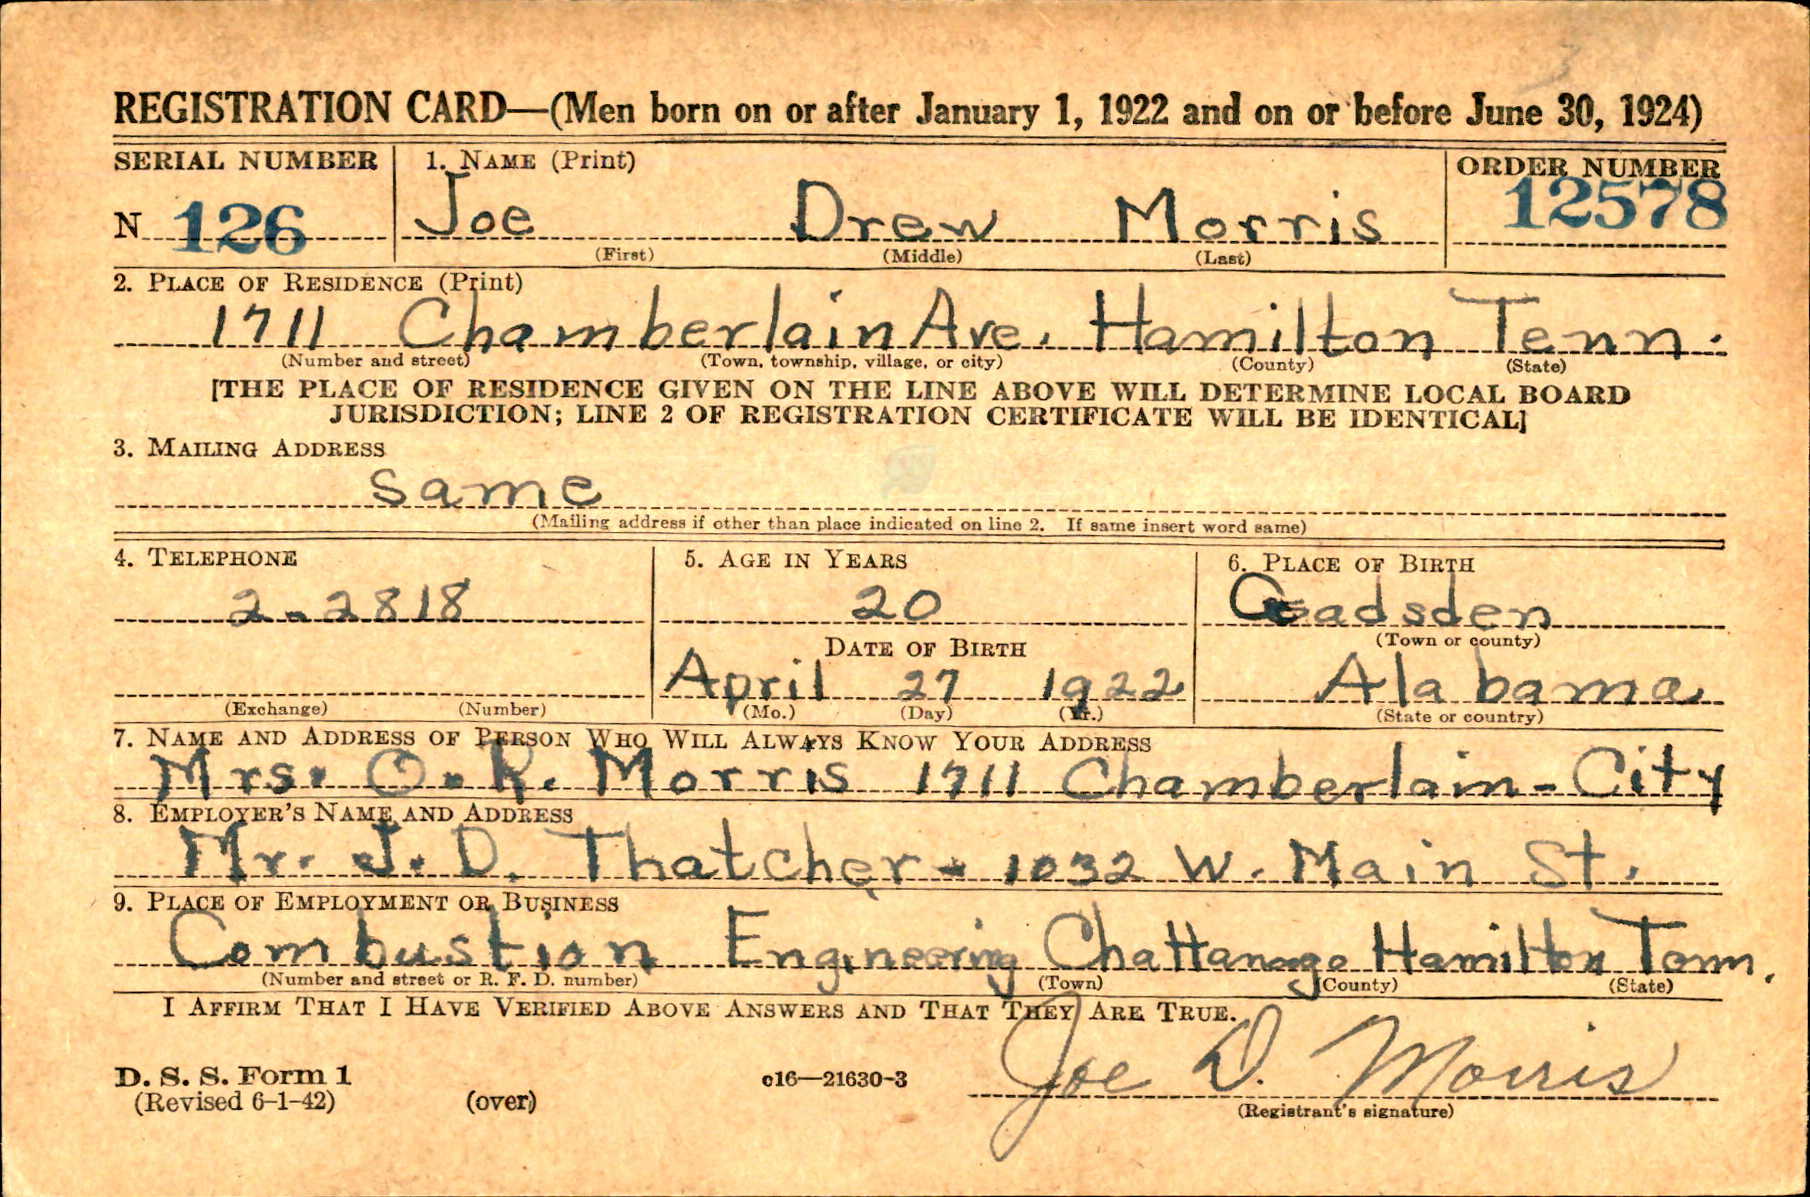 REGISTRATION CARD—(Men born on or after January 1, 1922 and on or before June 30, 1924)
SERIAL NUMBER 1. NAME (Print) ORDER NUMBER
N 126 Joe Drew Morris 12578
(First) (Middle) (Last)
2. PLACE OF RESIDENCE (Print)
1711 Chamberlain Ave. Hamilton Tenn.
(Number and street) (Town, township, village, or city) (County) (State)
[THE PLACE OF RESIDENCE GIVEN ON THE LINE ABOVE WILL DETERMINE LOCAL BOARD
JURISDICTION; LINE 2 OF REGISTRATION CERTIFICATE WILL BE IDENTICAL]
3. MAILING ADDRESS
same
(Mailing address if other than place indicated on line 2. If same insert word same)
4. TELEPHONE 5. AGE IN YEARS 6. PLACE OF BIRTH
2-2818 20 Gadsden
(Town or county)
DATE OF BIRTH
April 27 1922 Alabama
(Exchange) (Number) (Mo.) (Day) (Yr.) (State or country)
7. NAME AND ADDRESS OF PERSON WHO WILL ALWAYS KNOW YOUR ADDRESS
Mrs. O. R. Morris 1711 Chamberlain - City
8. EMPLOYER'S NAME AND ADDRESS
Mr. J. D. Thatcher - 1032 W. Main St.
9. PLACE OF EMPLOYMENT OR BUSINESS
Combustion Engineering Chattanooga Hamilton Tenn.
(Number and street or R. F. D. number) (Town) (County) (State)
I AFFIRM THAT I HAVE VERIFIED ABOVE ANSWERS AND THAT THEY ARE TRUE.
Joe D. Morris
D. S. S. Form 1 c16—21630-3
(Revised 6-1-42) (over) (Registrant's signature)